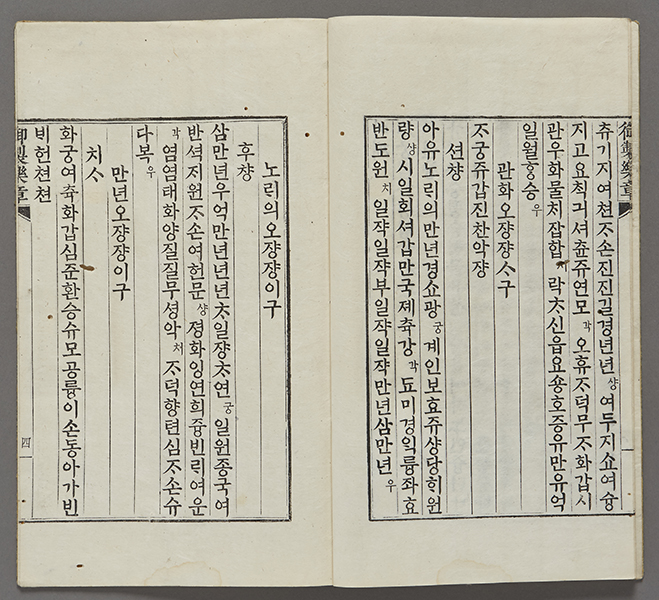 御製樂章
츄기지여쳔ᄌᆞ손진진길경년년 샹 여두지쇼여슝
지고요칙긔셔츈쥬연모 각 오휴ᄌᆞ덕무ᄌᆞ화갑시
관우화물치잡합 락ᄎᆞ신읍요숑호증유만유억
일월ᄒᆞᆼ승 우
관화오쟝쟝ᄉᆞ구
ᄌᆞ궁쥬갑진찬악쟝
션챵
아유노리의만년경쇼광 궁 계인보효쥬샹당히원
량 샹 시일회셔갑만국졔츅강 각 됴미경익륭좌효
반도원 치 일쟉일쟉부일쟉일쟉만년삼만년 우
노리의오쟝쟝이구
후챵
삼만년우억만년년년ᄎᆞ일쟝ᄎᆞ연 궁 일원종국여
반셕지원ᄌᆞ손여헌문 샹 졍화잉연희즁빈리여운
각 염염태화양질질무셩악 치 ᄌᆞ덕향텬심ᄌᆞ손슈
다복 우
만년오쟝쟝이구
치ᄉᆞ
화궁여츅화갑심쥰환승슈모공륭이손동아가빈
비헌쳔쳔
御製樂章
四